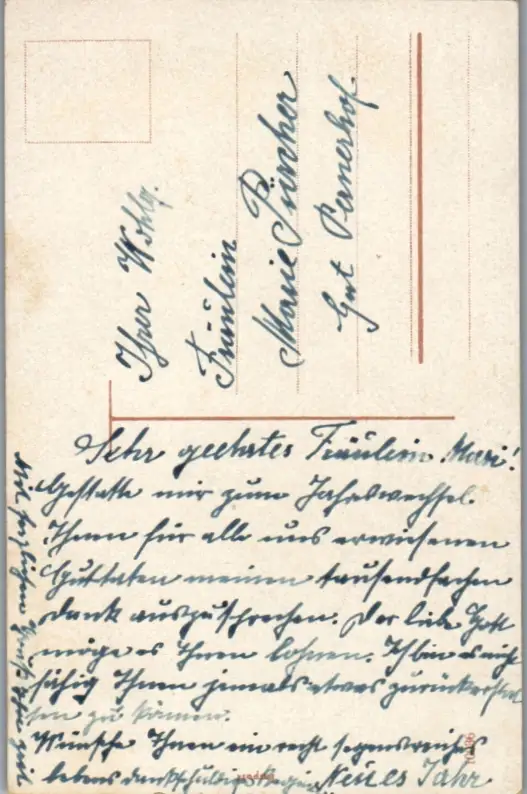 Ihrer Wohlg.
Fräulein
Marie Pürcher
Gut Pernerhof.
Sehr geehrtes Fräulein Mari!
Gestatte mir zum Jahreswechsel
Ihnen für alle uns erwiesenen
Guttaten meinen tausendfachen
Dank auszusprechen. Der liebe Gott
möge es Ihnen lohnen. Ich bin es nicht
fähig Ihnen jemals etwas zurück
zu können.
Wünsche Ihnen ein recht segensreiches
Neues Jahr
lebens dankschuldig
Mit herzlichen Grüß